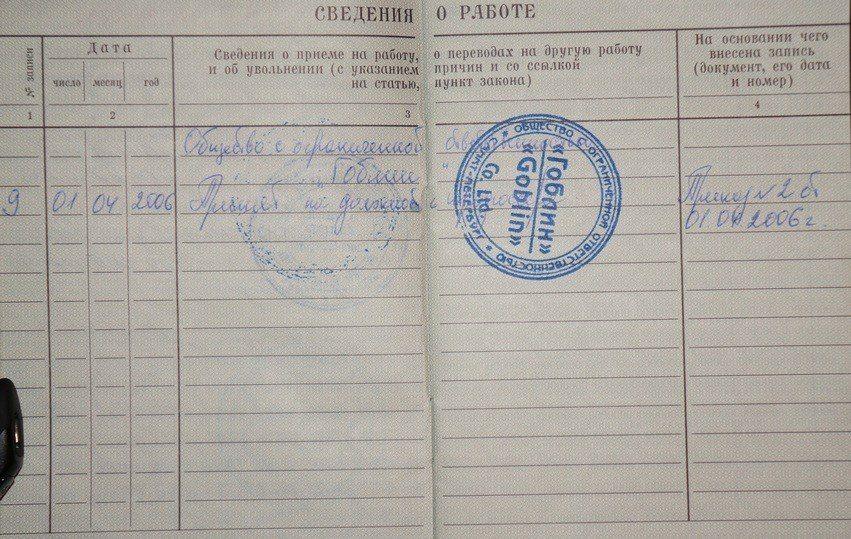 СВЕДЕНИЯ О РАБОТЕ
№ записи
Дата
число месяц год
Сведения о приеме на работу, о переводах на другую работу
и об увольнении (с указанием причин и со ссылкой
на статью, пункт закона)
На основании чего
внесена запись
(документ, его дата
и номер)
1 2 3 4
Общество с ограниченной
Гоблин
9 01 04 2006 Принят на должность
Приказ № 2 от
01.04.2006 г.
ОБЩЕСТВО С ОГРАНИЧЕННОЙ ОТВЕТСТВЕННОСТЬЮ
САНКТ-ПЕТЕРБУРГ
«Гоблин»
«Goblin»
Co. Ltd